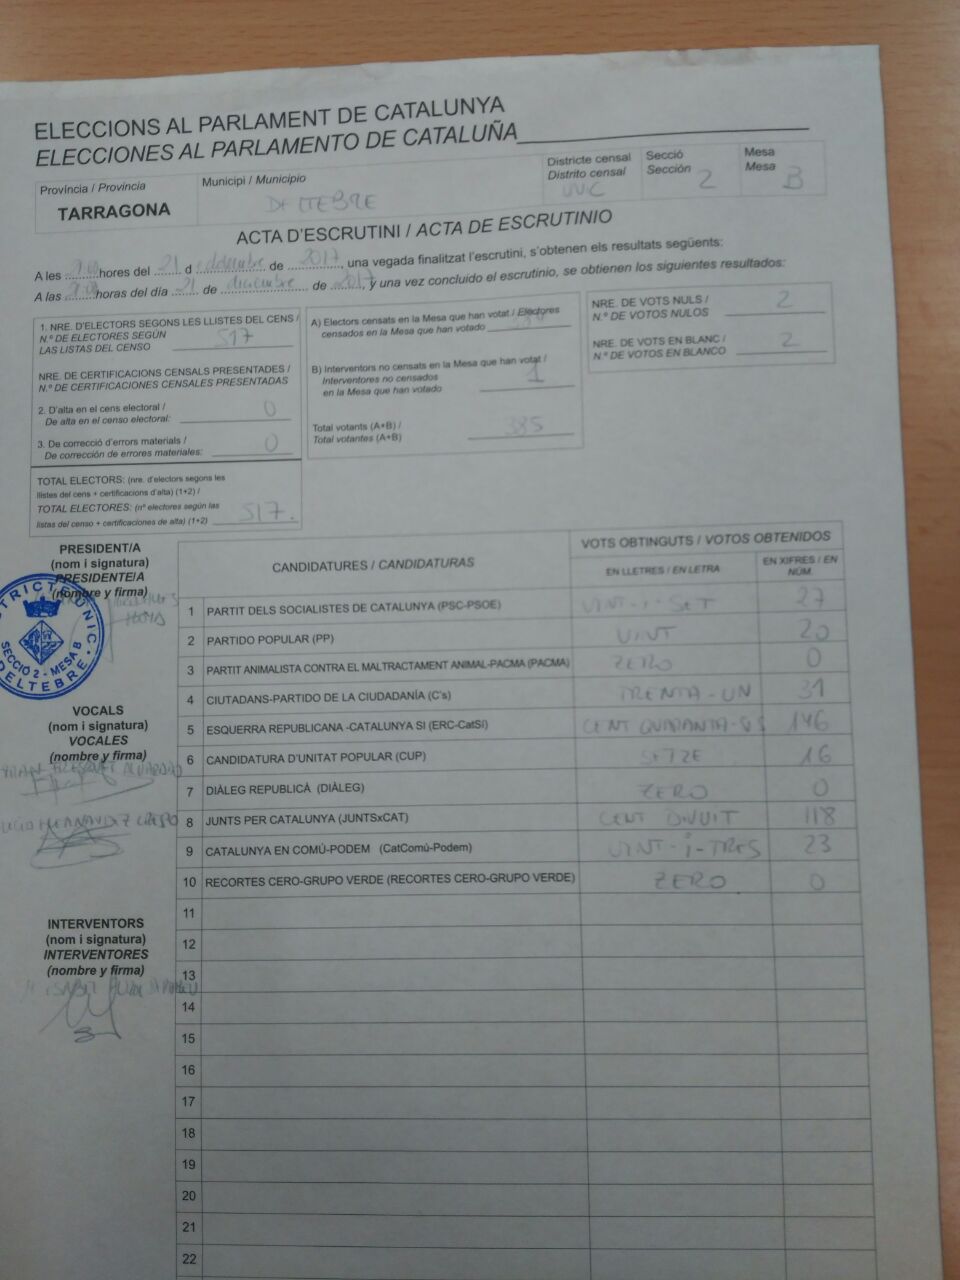 ELECCIONS AL PARLAMENT DE CATALUNYA
ELECCIONES AL PARLAMENTO DE CATALUÑA
Província / Provincia
TARRAGONA
Municipi / Municipio
DELTEBRE
Districte censal
Distrito censal
Secció
Sección 2
Mesa
Mesa B
ACTA D'ESCRUTINI / ACTA DE ESCRUTINIO
A les hores del 21 d de 2017, una vegada finalitzat l'escrutini, s'obtenen els resultats següents:
A las horas del día 21 de diciembre de 2017, y una vez concluido el escrutinio, se obtienen los siguientes resultados:
1. NRE. D'ELECTORS SEGONS LES LLISTES DEL CENS /
N.º DE ELECTORES SEGÚN
LAS LISTAS DEL CENSO 517
NRE. DE CERTIFICACIONS CENSALS PRESENTADES /
N.º DE CERTIFICACIONES CENSALES PRESENTADAS
2. D'alta en el cens electoral /
De alta en el censo electoral: 0
3. De correcció d'errors materials /
De corrección de errores materiales: 0
TOTAL ELECTORS: (nre. d'electors segons les
llistes del cens + certificacions d'alta) (1+2) /
TOTAL ELECTORES: (nº electores según las
listas del censo + certificaciones de alta) (1+2) 517.
A) Electors censats en la Mesa que han votat / Electores
censados en la Mesa que han votado
B) Interventors no censats en la Mesa que han votat /
Interventores no censados
en la Mesa que han votado 1
Total votants (A+B) /
Total votantes (A+B) 385
NRE. DE VOTS NULS /
N.º DE VOTOS NULOS 2
NRE. DE VOTS EN BLANC /
N.º DE VOTOS EN BLANCO 2
PRESIDENT/A
(nom i signatura)
PRESIDENTE/A
(nombre y firma)
DISTRICTE UNIC
SECCIÓ 2 - MESA B
DELTEBRE
VOCALS
(nom i signatura)
VOCALES
(nombre y firma)
INTERVENTORS
(nom i signatura)
INTERVENTORES
(nombre y firma)
CANDIDATURES / CANDIDATURAS
VOTS OBTINGUTS / VOTOS OBTENIDOS
EN LLETRES / EN LETRA
EN XIFRES / EN NÚM.
1 PARTIT DELS SOCIALISTES DE CATALUNYA (PSC-PSOE) VINT-I-SET 27
2 PARTIDO POPULAR (PP) VINT 20
3 PARTIT ANIMALISTA CONTRA EL MALTRACTAMENT ANIMAL-PACMA (PACMA) ZERO 0
4 CIUTADANS-PARTIDO DE LA CIUDADANÍA (C's) TRENTA-UN 31
5 ESQUERRA REPUBLICANA -CATALUNYA SI (ERC-CatSí) CENT QUARANTA-SIS 146
6 CANDIDATURA D'UNITAT POPULAR (CUP) SETZE 16
7 DIÀLEG REPUBLICÀ (DIÀLEG) ZERO 0
8 JUNTS PER CATALUNYA (JUNTSxCAT) CENT DIVUIT 118
9 CATALUNYA EN COMÚ-PODEM (CatComú-Podem) VINT-i-TRES 23
10 RECORTES CERO-GRUPO VERDE (RECORTES CERO-GRUPO VERDE) ZERO 0
11
12
13
14
15
16
17
18
19
20
21
22